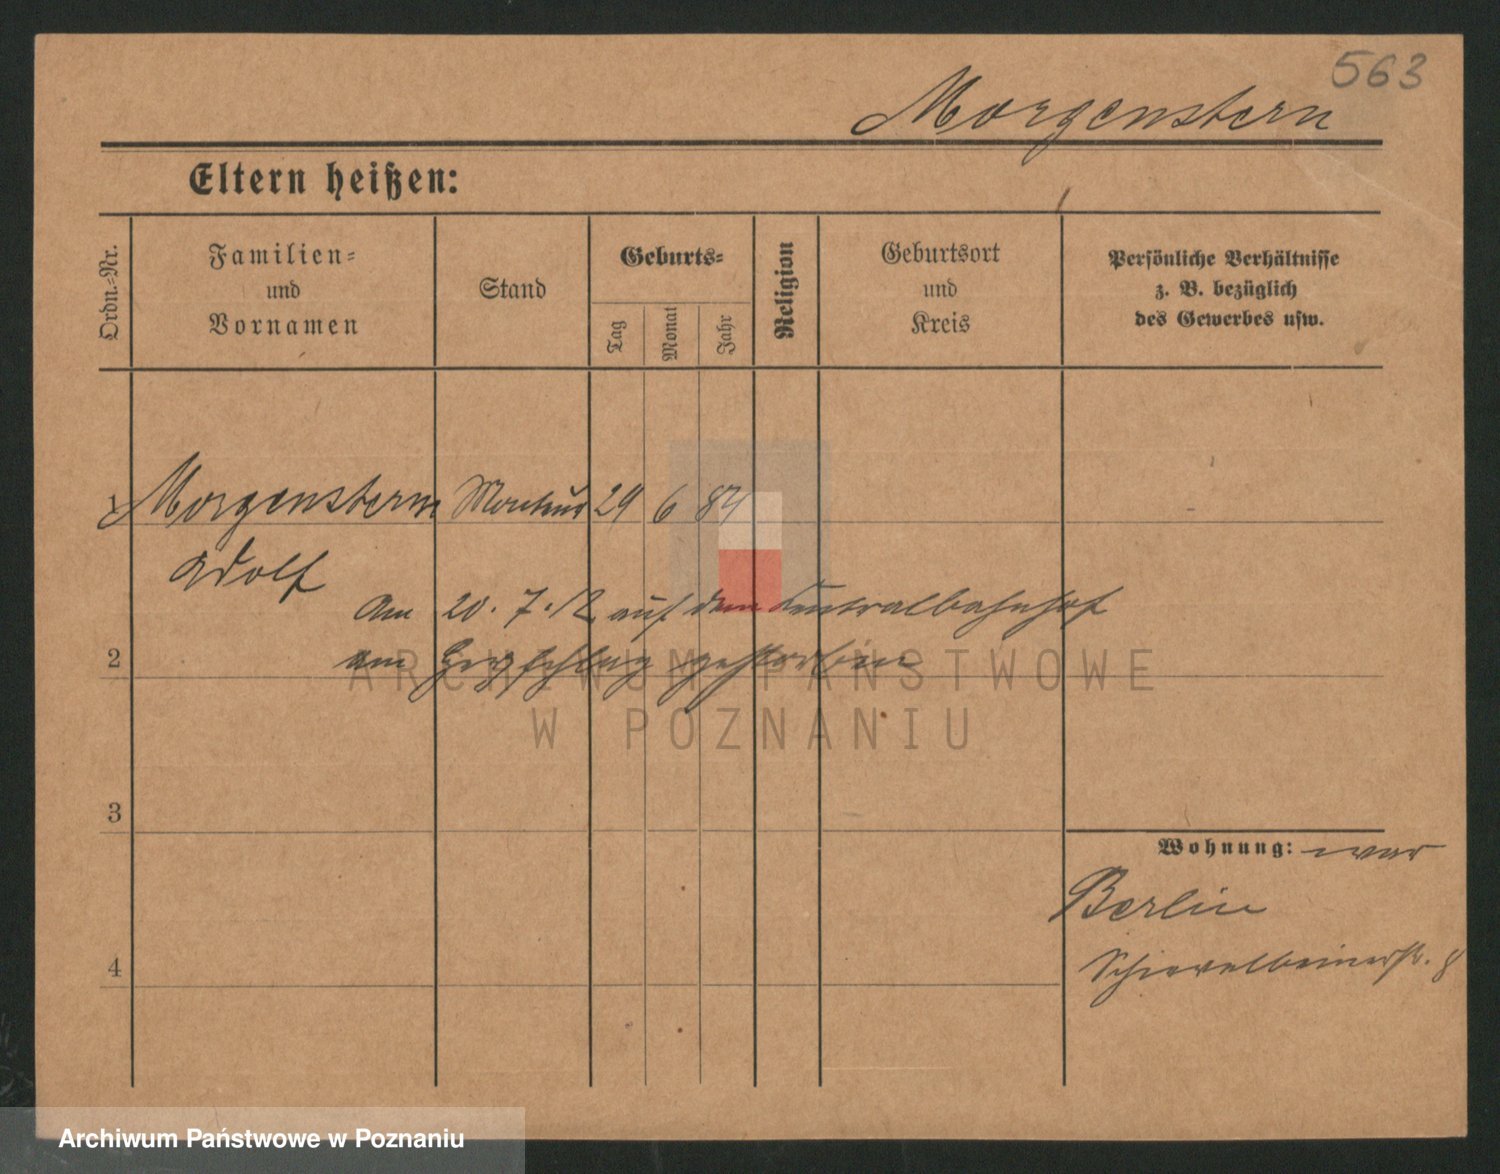 563
Morgenstern
Eltern heißen:
Ordn.-Nr.
Familien-
und
Vornamen
Stand
Geburts-
Tag
Monat
Jahr
Religion
Geburtsort
und
Kreis
Persönliche Verhältnisse
z. B. bezüglich
des Gewerbes usw.
1 Morgenstern Monteur 29 6 84
Adolf
Am 20. 7. 12 auf dem Centralbahnhof
2 am Herzschlag gestorben
ARCHIWUM PAŃSTWOWE
W POZNANIU
3
Wohnung: war
Berlin
4 Schievelbeinerstr. 8
Archiwum Państwowe w Poznaniu